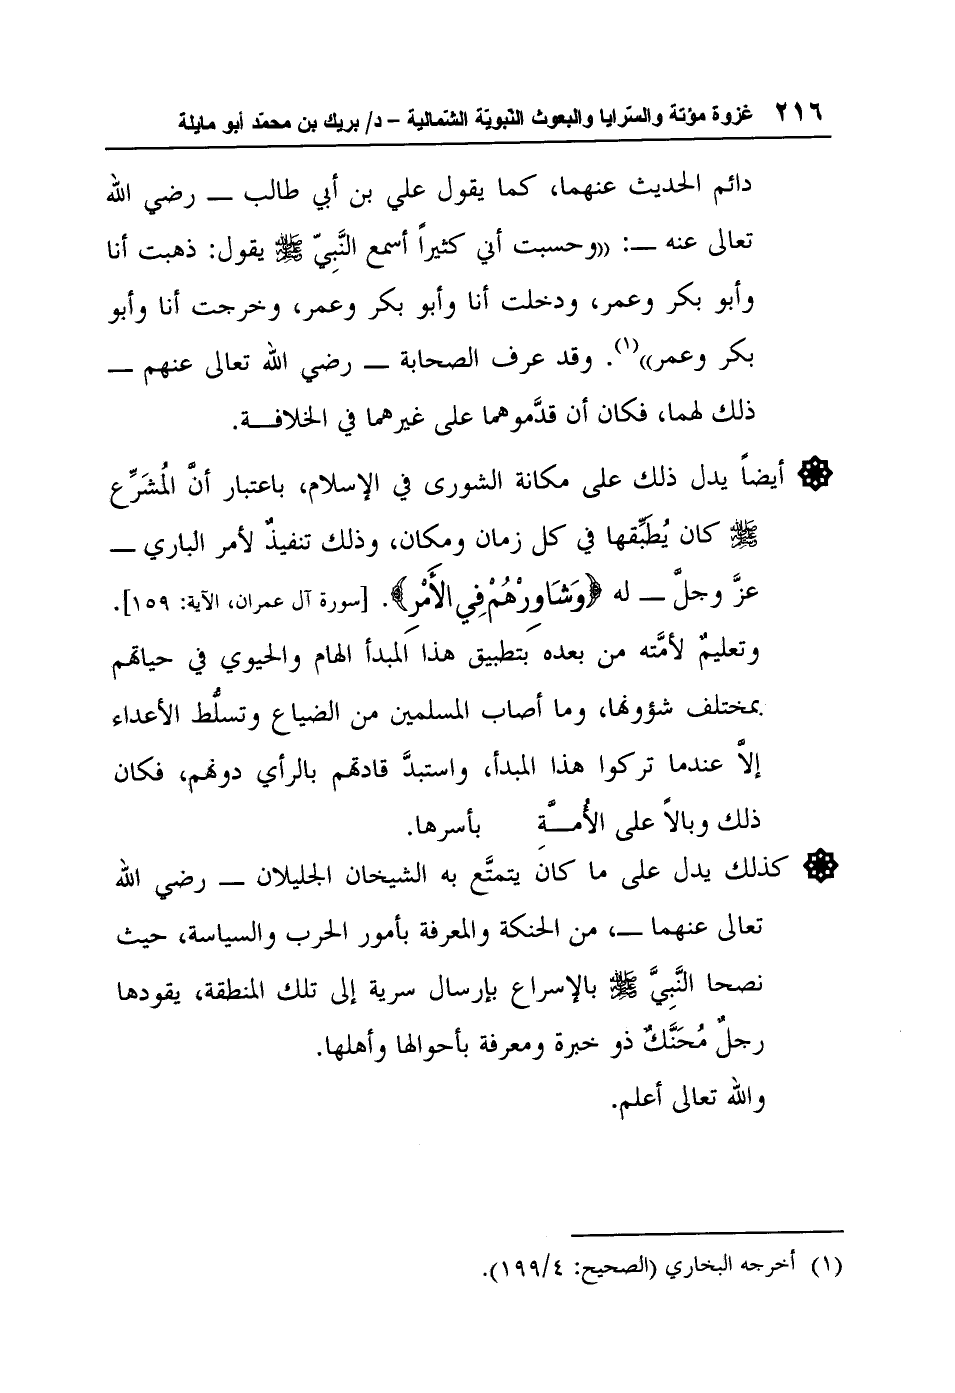 ٢١٦ غزوة مؤتة والسّرايا والبعوث النّبويّة الشّماليّة – د/ بريك بن محمّد أبو مايلة
دائم الحديث عنهما، كما يقول علي بن أبي طالب ــ رضي الله
تعالى عنه ــ: ((وحسبت أني كثيراً أسمع النَّبِيّ ﷺ يقول: ذهبت أنا
وأبو بكر وعمر، ودخلت أنا وأبو بكر وعمر، وخرجت أنا وأبو
بكر وعمر))(١). وقد عرف الصحابة ــ رضي الله تعالى عنهم ــ
ذلك لهما، فكان أن قدَّموهما على غيرهما في الخلافــة.
أيضاً يدل ذلك على مكانة الشورى في الإسلام، باعتبار أنَّ المُشَرِّع
ﷺ كان يُطَبِّقها في كل زمان ومكان، وذلك تنفيذٌ لأمر الباري ــ
عزَّ وجلَّ ــ له ﴿وَشَاوِرْهُمْ فِي الأَمْرِ﴾. [سورة آل عمران، الآية: ١٥٩].
وتعليمٌ لأمَّته من بعده بتطبيق هذا المبدأ الهام والحيوي في حياتهم
بمختلف شؤونها، وما أصاب المسلمين من الضياع وتسلُّط الأعداء
إلاَّ عندما تركوا هذا المبدأ، واستبدَّ قادتهم بالرأي دونهم، فكان
ذلك وبالاً على الأُمــَّةِ بأسرها.
كذلك يدل على ما كان يتمتَّع به الشيخان الجليلان ــ رضي الله
تعالى عنهما ــ، من الحنكة والمعرفة بأمور الحرب والسياسة، حيث
نصحا النَّبِيَّ ﷺ بالإسراع بإرسال سرية إلى تلك المنطقة، يقودها
رجلٌ مُحَنَّكٌ ذو خبرة ومعرفة بأحوالها وأهلها.
والله تعالى أعلم.
(١) أخرجه البخاري (الصحيح: ١٩٩/٤).